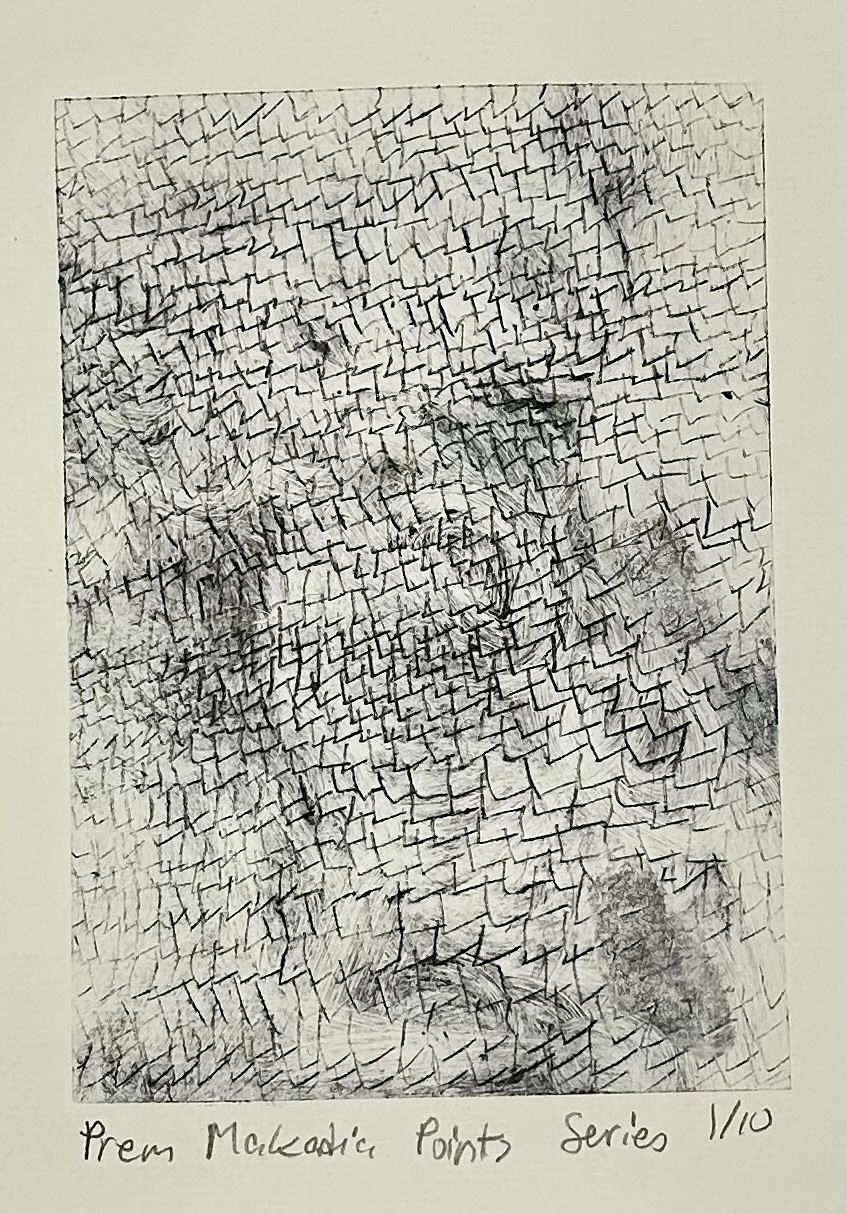 Prem Makadia Points Series 1/10